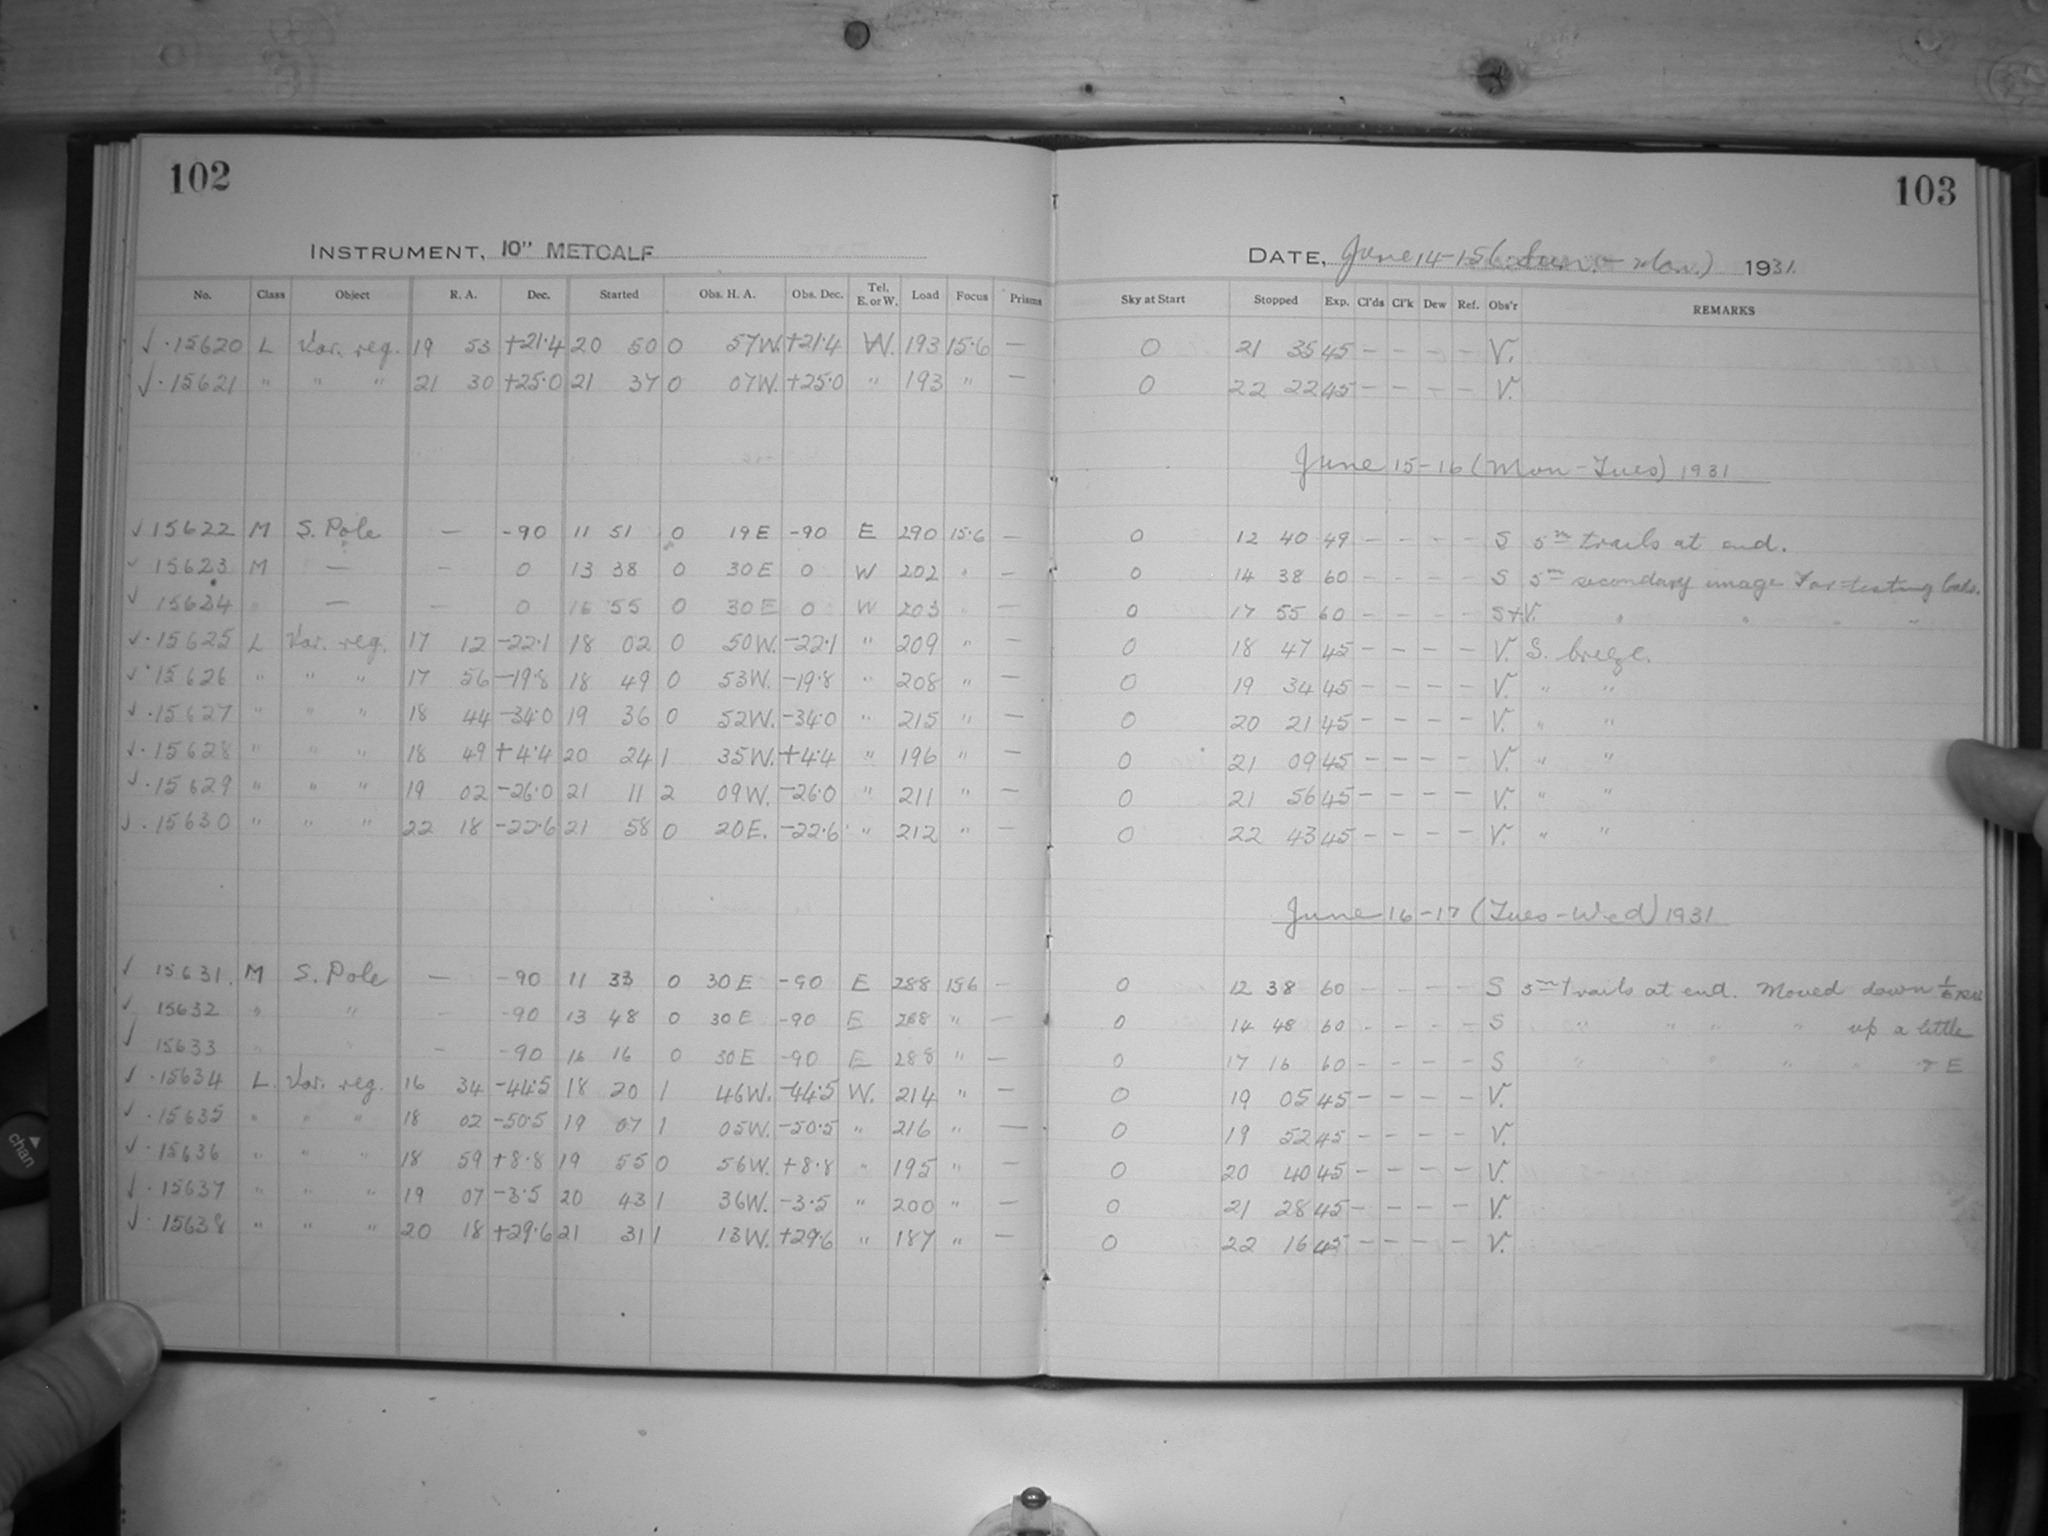 102
103
INSTRUMENT, 10" METCALF
DATE, June 14-15 (Sun. - Mon.) 1931.
No. Class Object R. A. Dec. Started Obs. H. A. Obs. Dec. Tel. E. or W. Load Focus Prisms Sky at Start Stopped Exp. Cl'ds Cl'k Dew Ref. Obs'r REMARKS
√ · 15620 L Var. reg. 19 53 +21.4 20 50 0 57W. +21.4 W. 193 15.6 — 0 21 35 45 - - - - V.
√ · 15621 " " " 21 30 +25.0 21 37 0 07W. +25.0 " 193 " — 0 22 22 45 - - - - V.
June 15-16 (Mon-Tues) 1931
√ 15622 M S. Pole — -90 11 51 0 19E -90 E 290 15.6 — 0 12 40 49 - - - - S 5m trails at end.
√ 15623 M — 0 13 38 0 30E 0 W 202 " — 0 14 38 60 - - - - S 5m secondary image For testing
√ 15624 " — — 0 16 55 0 30E 0 W 203 " — 0 17 55 60 - - - - S+V. " " " "
√ · 15625 L Var. reg. 17 12 -22.1 18 02 0 50W. -22.1 " 209 " — 0 18 47 45 - - - - V. S. breeze.
√ · 15626 " " " 17 56 -19.8 18 49 0 53W. -19.8 " 208 " — 0 19 34 45 - - - - V. " "
√ · 15627 " " " 18 44 -34.0 19 36 0 52W. -34.0 " 215 " — 0 20 21 45 - - - - V. " "
√ · 15628 " " " 18 49 +4.4 20 24 1 35W. +4.4 " 196 " — 0 21 09 45 - - - - V. " "
√ · 15629 " " " 19 02 -26.0 21 11 2 09W. -26.0 " 211 " — 0 21 56 45 - - - - V. " "
√ · 15630 " " " 22 18 -22.6 21 58 0 20E. -22.6 " 212 " — 0 22 43 45 - - - - V. " "
June 16-17 (Tues-Wed) 1931
√ 15631. M S. Pole — -90 11 33 0 30E -90 E 288 156 — 0 12 38 60 - - - - S 5m trails at end. Moved down
√ 15632 " " — -90 13 48 0 30E -90 E 288 " — 0 14 48 60 - - - - S " " " " up a little
√ 15633 " " — -90 16 16 0 30E -90 E 288 " — 0 17 16 60 - - - - S " " " " " + E
√ · 15634 L. Var. reg. 16 34 -44.5 18 20 1 46W. -44.5 W. 214 " — 0 19 05 45 - - - - V.
√ · 15635 " " " 18 02 -50.5 19 07 1 05W. -50.5 " 216 " — 0 19 52 45 - - - - V.
√ · 15636 " " " 18 59 +8.8 19 55 0 56W. +8.8 " 195 " — 0 20 40 45 - - - - V.
√ · 15637 " " " 19 07 -3.5 20 43 1 36W. -3.5 " 200 " — 0 21 28 45 - - - - V.
√ · 15638 " " " 20 18 +29.6 21 31 1 13W. +29.6 " 187 " — 0 22 16 45 - - - - V.
chan